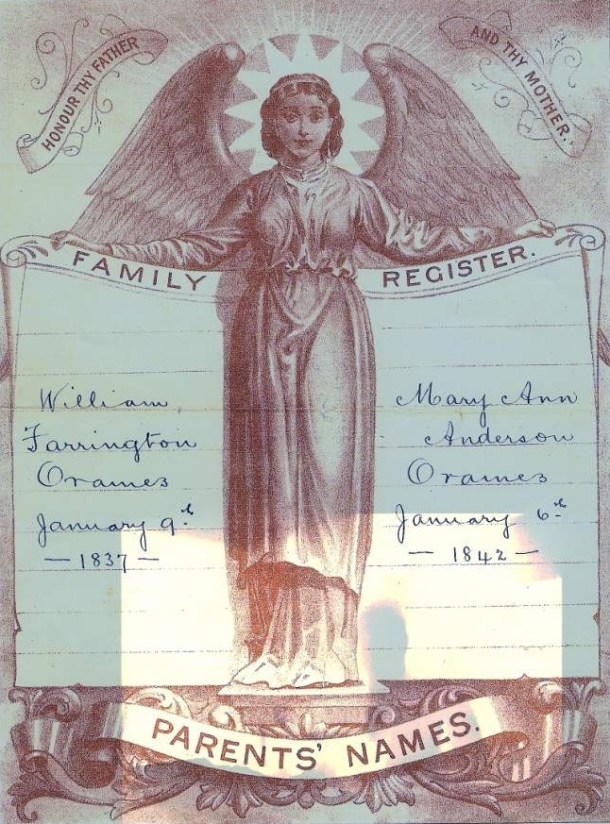 HONOUR THY FATHER
AND THY MOTHER.
FAMILY REGISTER.
William
Farrington
Orames
January 9th
— 1837 —
Mary Ann
Anderson
Orames
January 6th
— 1842 —
PARENTS' NAMES.